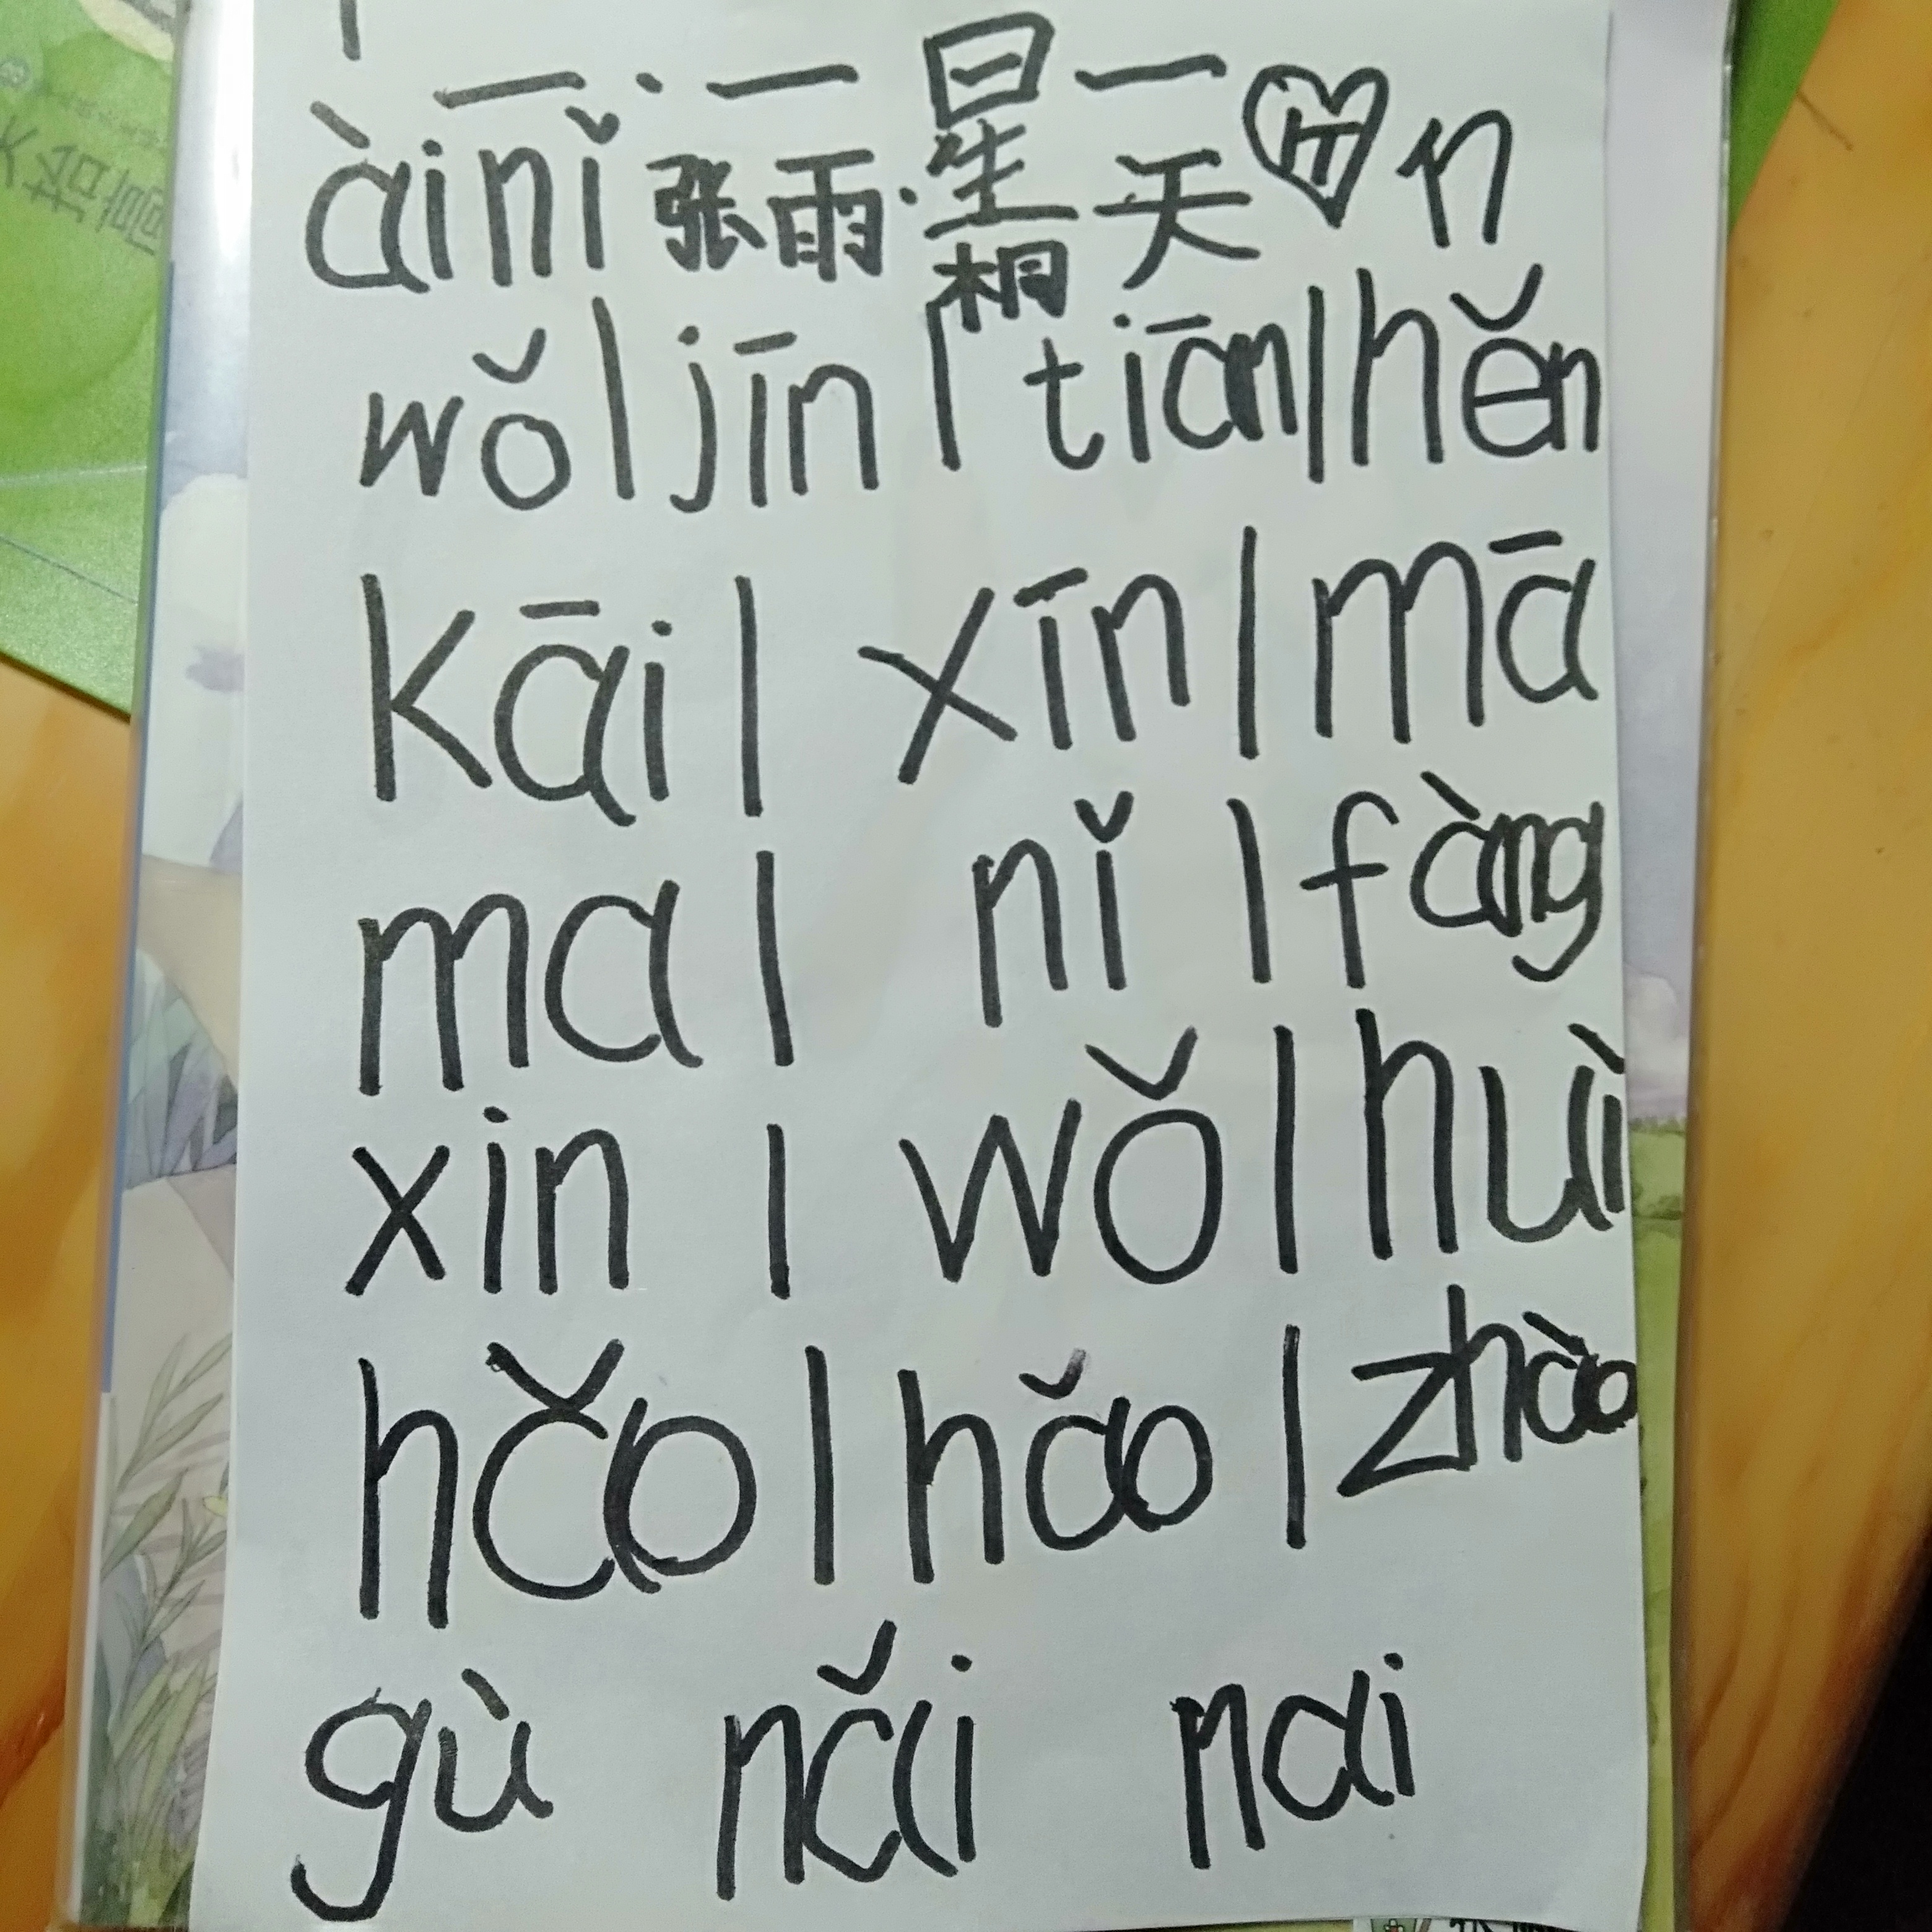 àinǐ 张雨·星天 n
桐
wǒ|jīn|tiān|hěn
kāi|xīn|mā
ma|nǐ|fàng
xin|wǒ|huì
hǎo|hǎo|zhào
gù nǎi nai